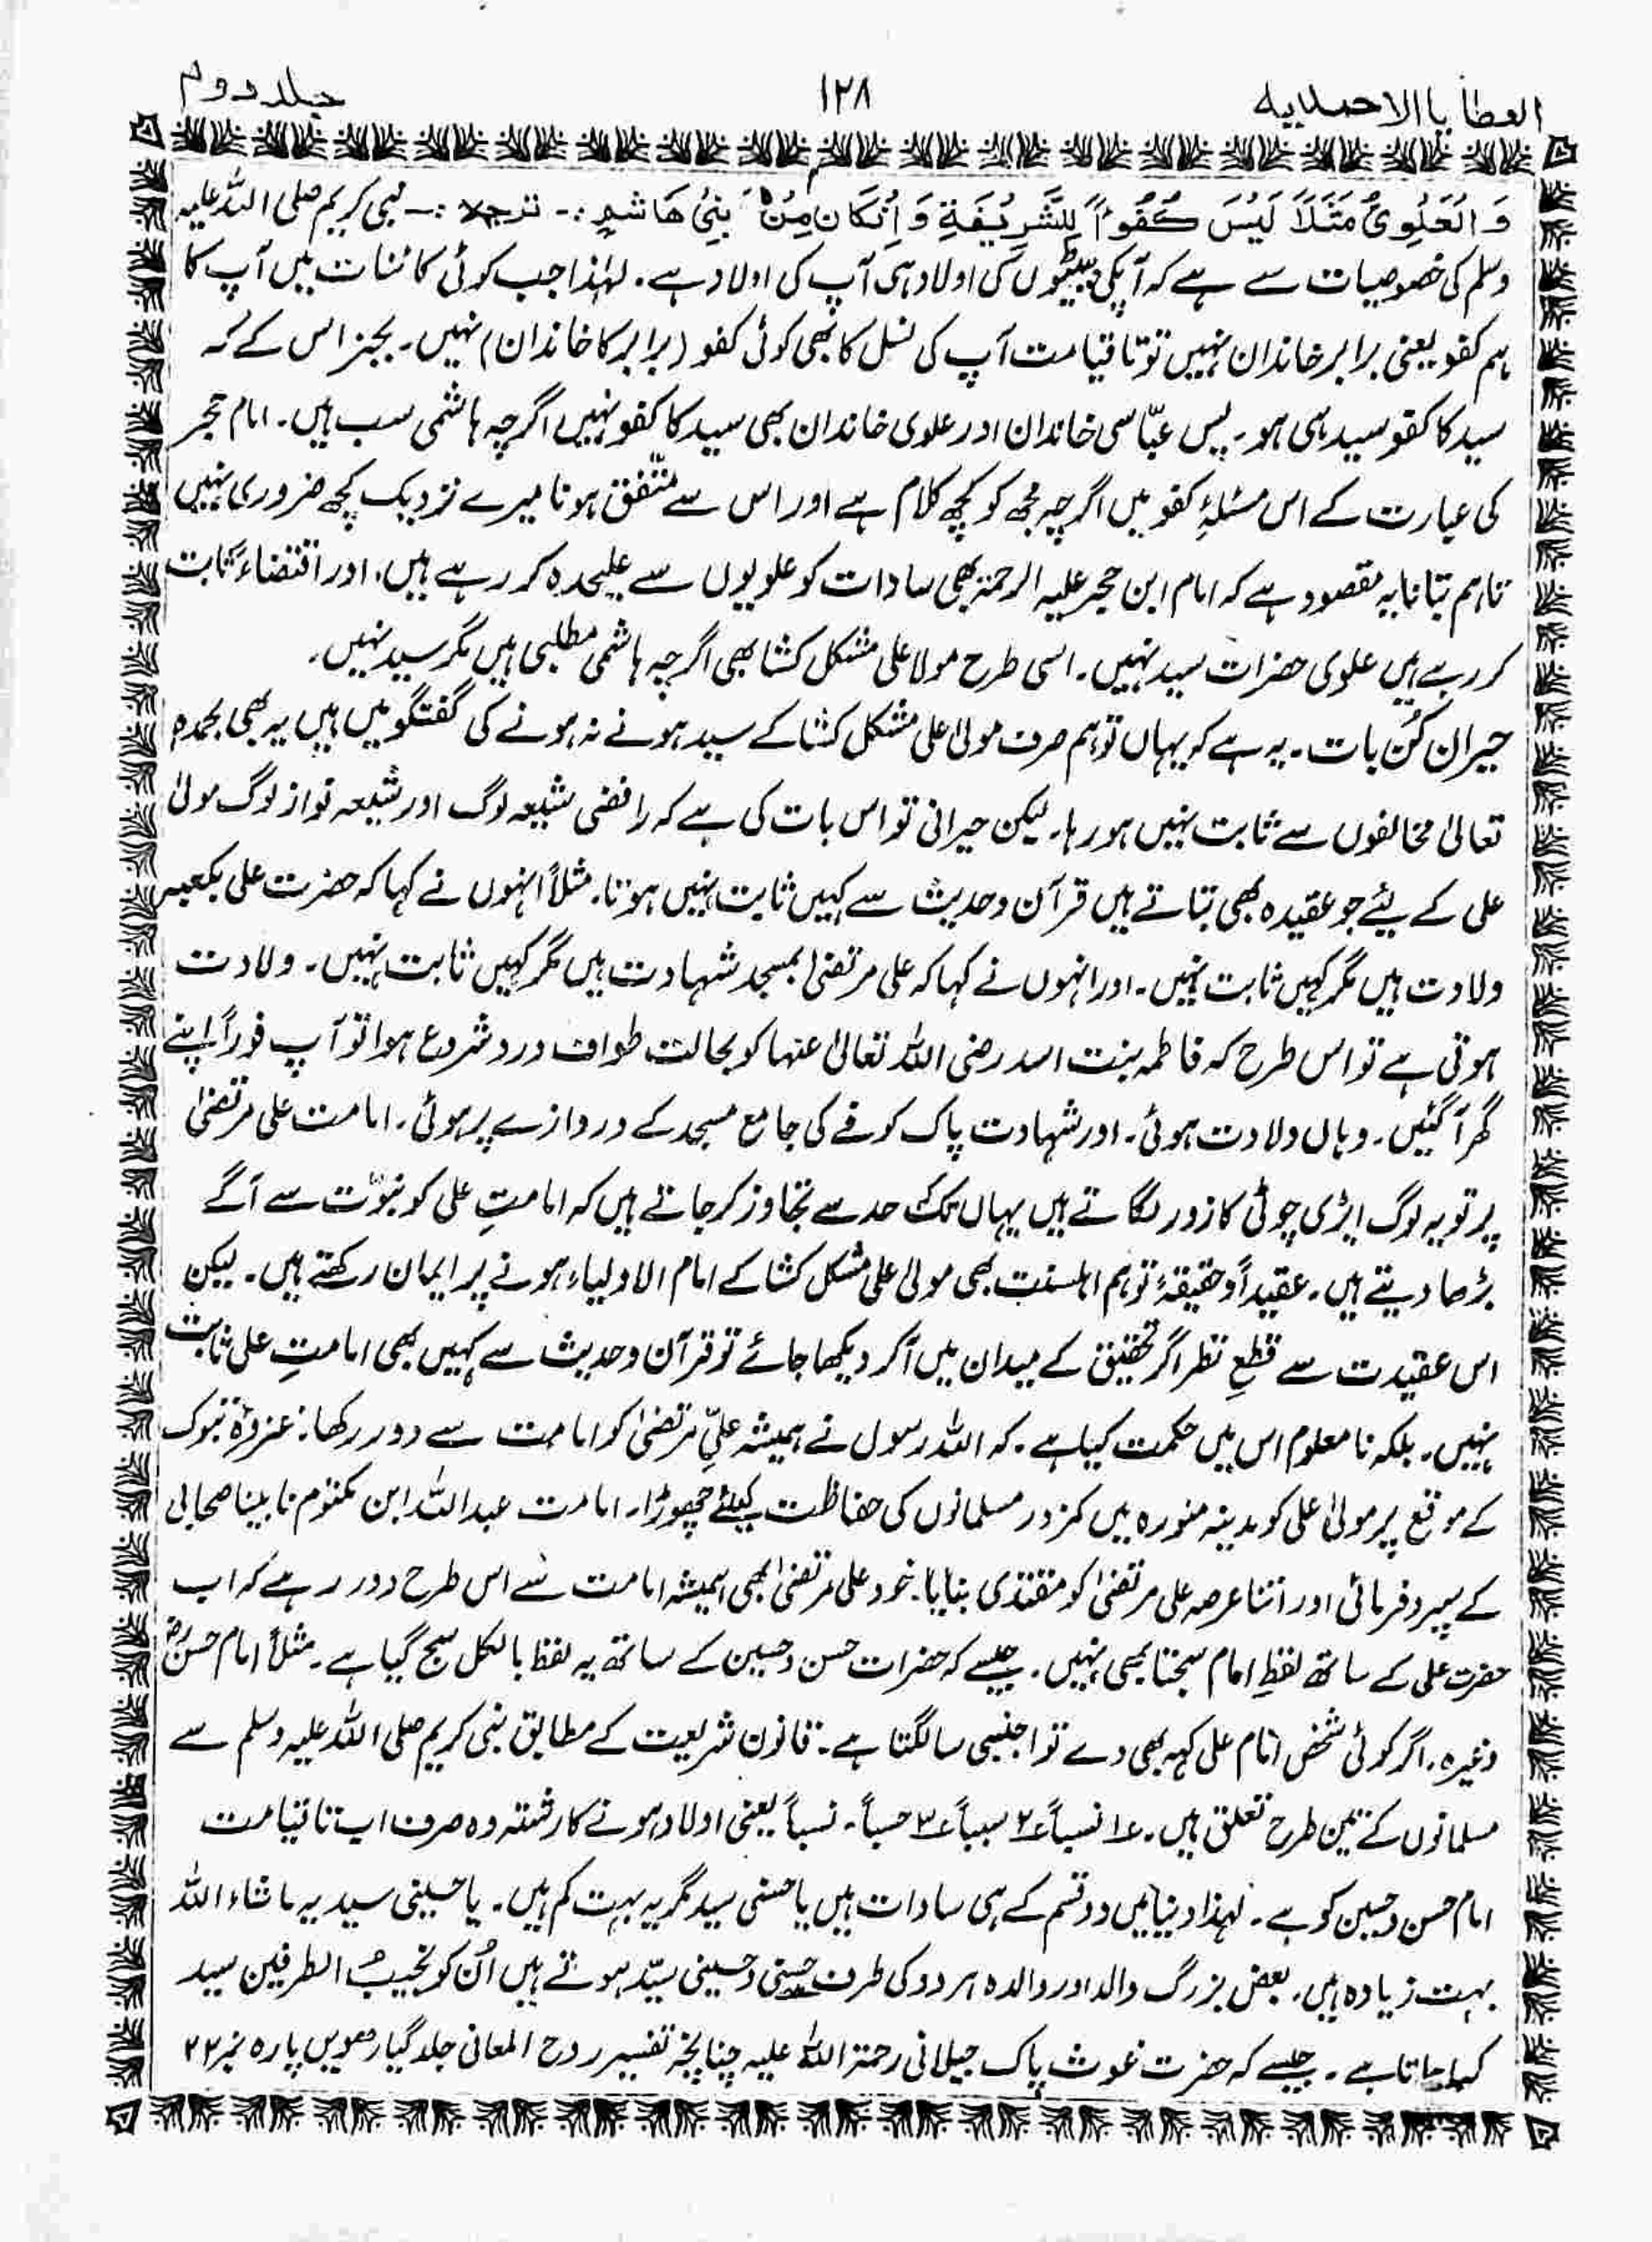 العطایا الاحمدیہ
۱۲۸
جلد دوم
وَالْعَلَوِیُّ مَثَلًا لَیْسَ کُفُوًا لِلشَّرِیْفَۃِ وَاِنْ کَانَ مِنْ بَنِیْ ھَاشِمٍ :۔ ترجمہ :۔ نبی کریم صلی اللہ علیہ
وسلم کی خصوصیات سے ہے کہ آپکی بیٹیوں کی اولاد ہی آپ کی اولاد ہے۔ لہٰذا جب کوئی کائنات میں آپ کا
ہم کفو یعنی برابر خاندان نہیں تو تا قیامت آپ کی نسل کا بھی کوئی کفو (برابر کا خاندان) نہیں۔ بجز اس کے کہ
سید کا کفو سید ہی ہو۔ پس عبّاسی خاندان اور علوی خاندان بھی سید کا کفو نہیں اگرچہ ہاشمی سب ہیں۔ امام حجر
کی عبارت کے اس مسئلۂ کفو میں اگرچہ مجھ کو کچھ کلام ہے اور اس سے متّفق ہونا میرے نزدیک کچھ ضروری نہیں
تاہم بتانا یہ مقصود ہے کہ امام ابن حجر علیہ الرحمۃ بھی سادات کو علویوں سے علیحدہ کر رہے ہیں، اور اقتضاءً ثابت
کر رہے ہیں علوی حضرات سید نہیں۔ اسی طرح مولا علی مشکل کشا بھی اگرچہ ہاشمی مطلبی ہیں مگر سید نہیں۔
حیران کُن بات۔ یہ ہے کہ یہاں تو ہم صرف مولیٰ علی مشکل کشا کے سید ہونے نہ ہونے کی گفتگو میں ہیں یہ بھی بحمدہٖ
تعالیٰ مخالفوں سے ثابت نہیں ہو رہا۔ لیکن حیرانی تو اس بات کی ہے کہ رافضی شیعہ لوگ اور شیعہ نواز لوگ مولیٰ
علی کے لیئے جو عقیدہ بھی بتاتے ہیں قرآن و حدیث سے کہیں ثابت نہیں ہوتا۔ مثلاً انہوں نے کہا کہ حضرت علی بکعبہ
ولادت ہیں مگر کہیں ثابت نہیں۔ اور انہوں نے کہا کہ علی مرتضیٰ بمسجد شہادت ہیں مگر کہیں ثابت نہیں۔ ولادت
ہوتی ہے تو اس طرح کہ فاطمہ بنت اسد رضی اللہ تعالیٰ عنہا کو بحالت طواف درد شروع ہوا تو آپ فوراً اپنے
گھر آ گئیں۔ وہاں ولادت ہوئی۔ اور شہادت پاک کوفے کی جامع مسجد کے دروازے پر ہوئی۔ امامت علی مرتضیٰ
پر تو یہ لوگ ایڑی چوٹی کا زور لگاتے ہیں یہاں تک حد سے تجاوز کر جاتے ہیں کہ امامتِ علی کو نبوّت سے آگے
بڑھا دیتے ہیں۔ عقیداً و حقیقۃً تو ہم اہلسنت بھی مولیٰ علی مشکل کشا کے امام الاولیاء ہونے پر ایمان رکھتے ہیں۔ لیکن
اس عقیدت سے قطعِ نظر اگر تحقیق کے میدان میں آ کر دیکھا جائے تو قرآن و حدیث سے کہیں بھی امامتِ علی ثابت
نہیں۔ بلکہ نا معلوم اس میں حکمت کیا ہے۔ کہ اللہ رسول نے ہمیشہ علیِّ مرتضیٰ کو امامت سے دور رکھا: غزوۂ تبوک
کے موقع پر مولیٰ علی کو مدینہ منورہ میں کمزور مسلمانوں کی حفاظت کیلئے چھوڑا۔ امامت عبداللہ ابن مکتوم نابینا صحابی
کے سپرد فرمائی اور اتنا عرصہ علی مرتضیٰ کو مقتدی بنایا۔ خود علی مرتضیٰ بھی ہمیشہ امامت سے اس طرح دور رہے کہ اب
حضرت علی کے ساتھ لفظِ امام سجتا بھی نہیں۔ جیسے کہ حضرات حسن و حسین کے ساتھ یہ لفظ بالکل سج گیا ہے۔ مثلاً امام حسنؓ
وغیرہ۔ اگر کوئی شخص امام علی کہہ بھی دے تو اجنبی سا لگتا ہے۔ قانون شریعت کے مطابق نبی کریم صلی اللہ علیہ وسلم سے
مسلمانوں کے تین طرح تعلق ہیں۔ ۱؎ نسباً ۲؎ سبباً ۳؎ حسباً۔ نسباً یعنی اولاد ہونے کا رشتہ وہ صرف اب تا قیامت
امام حسن و حسین کو ہے۔ لہذا دنیا میں دو قسم کے ہی سادات ہیں یا حسنی سید مگر یہ بہت کم ہیں۔ یا حسینی سید یہ ماشاء اللہ
بہت زیادہ ہیں۔ بعض بزرگ والد اور والدہ ہر دو کی طرف حسنی و حسینی سیّد ہوتے ہیں اُن کو نجیبُ الطرفین سید
کہا جاتا ہے۔ جیسے کہ حضرت غوث پاک جیلانی رحمۃ اللہ علیہ چنانچہ تفسیر روح المعانی جلد گیارھویں پارہ نمبر ۲۲